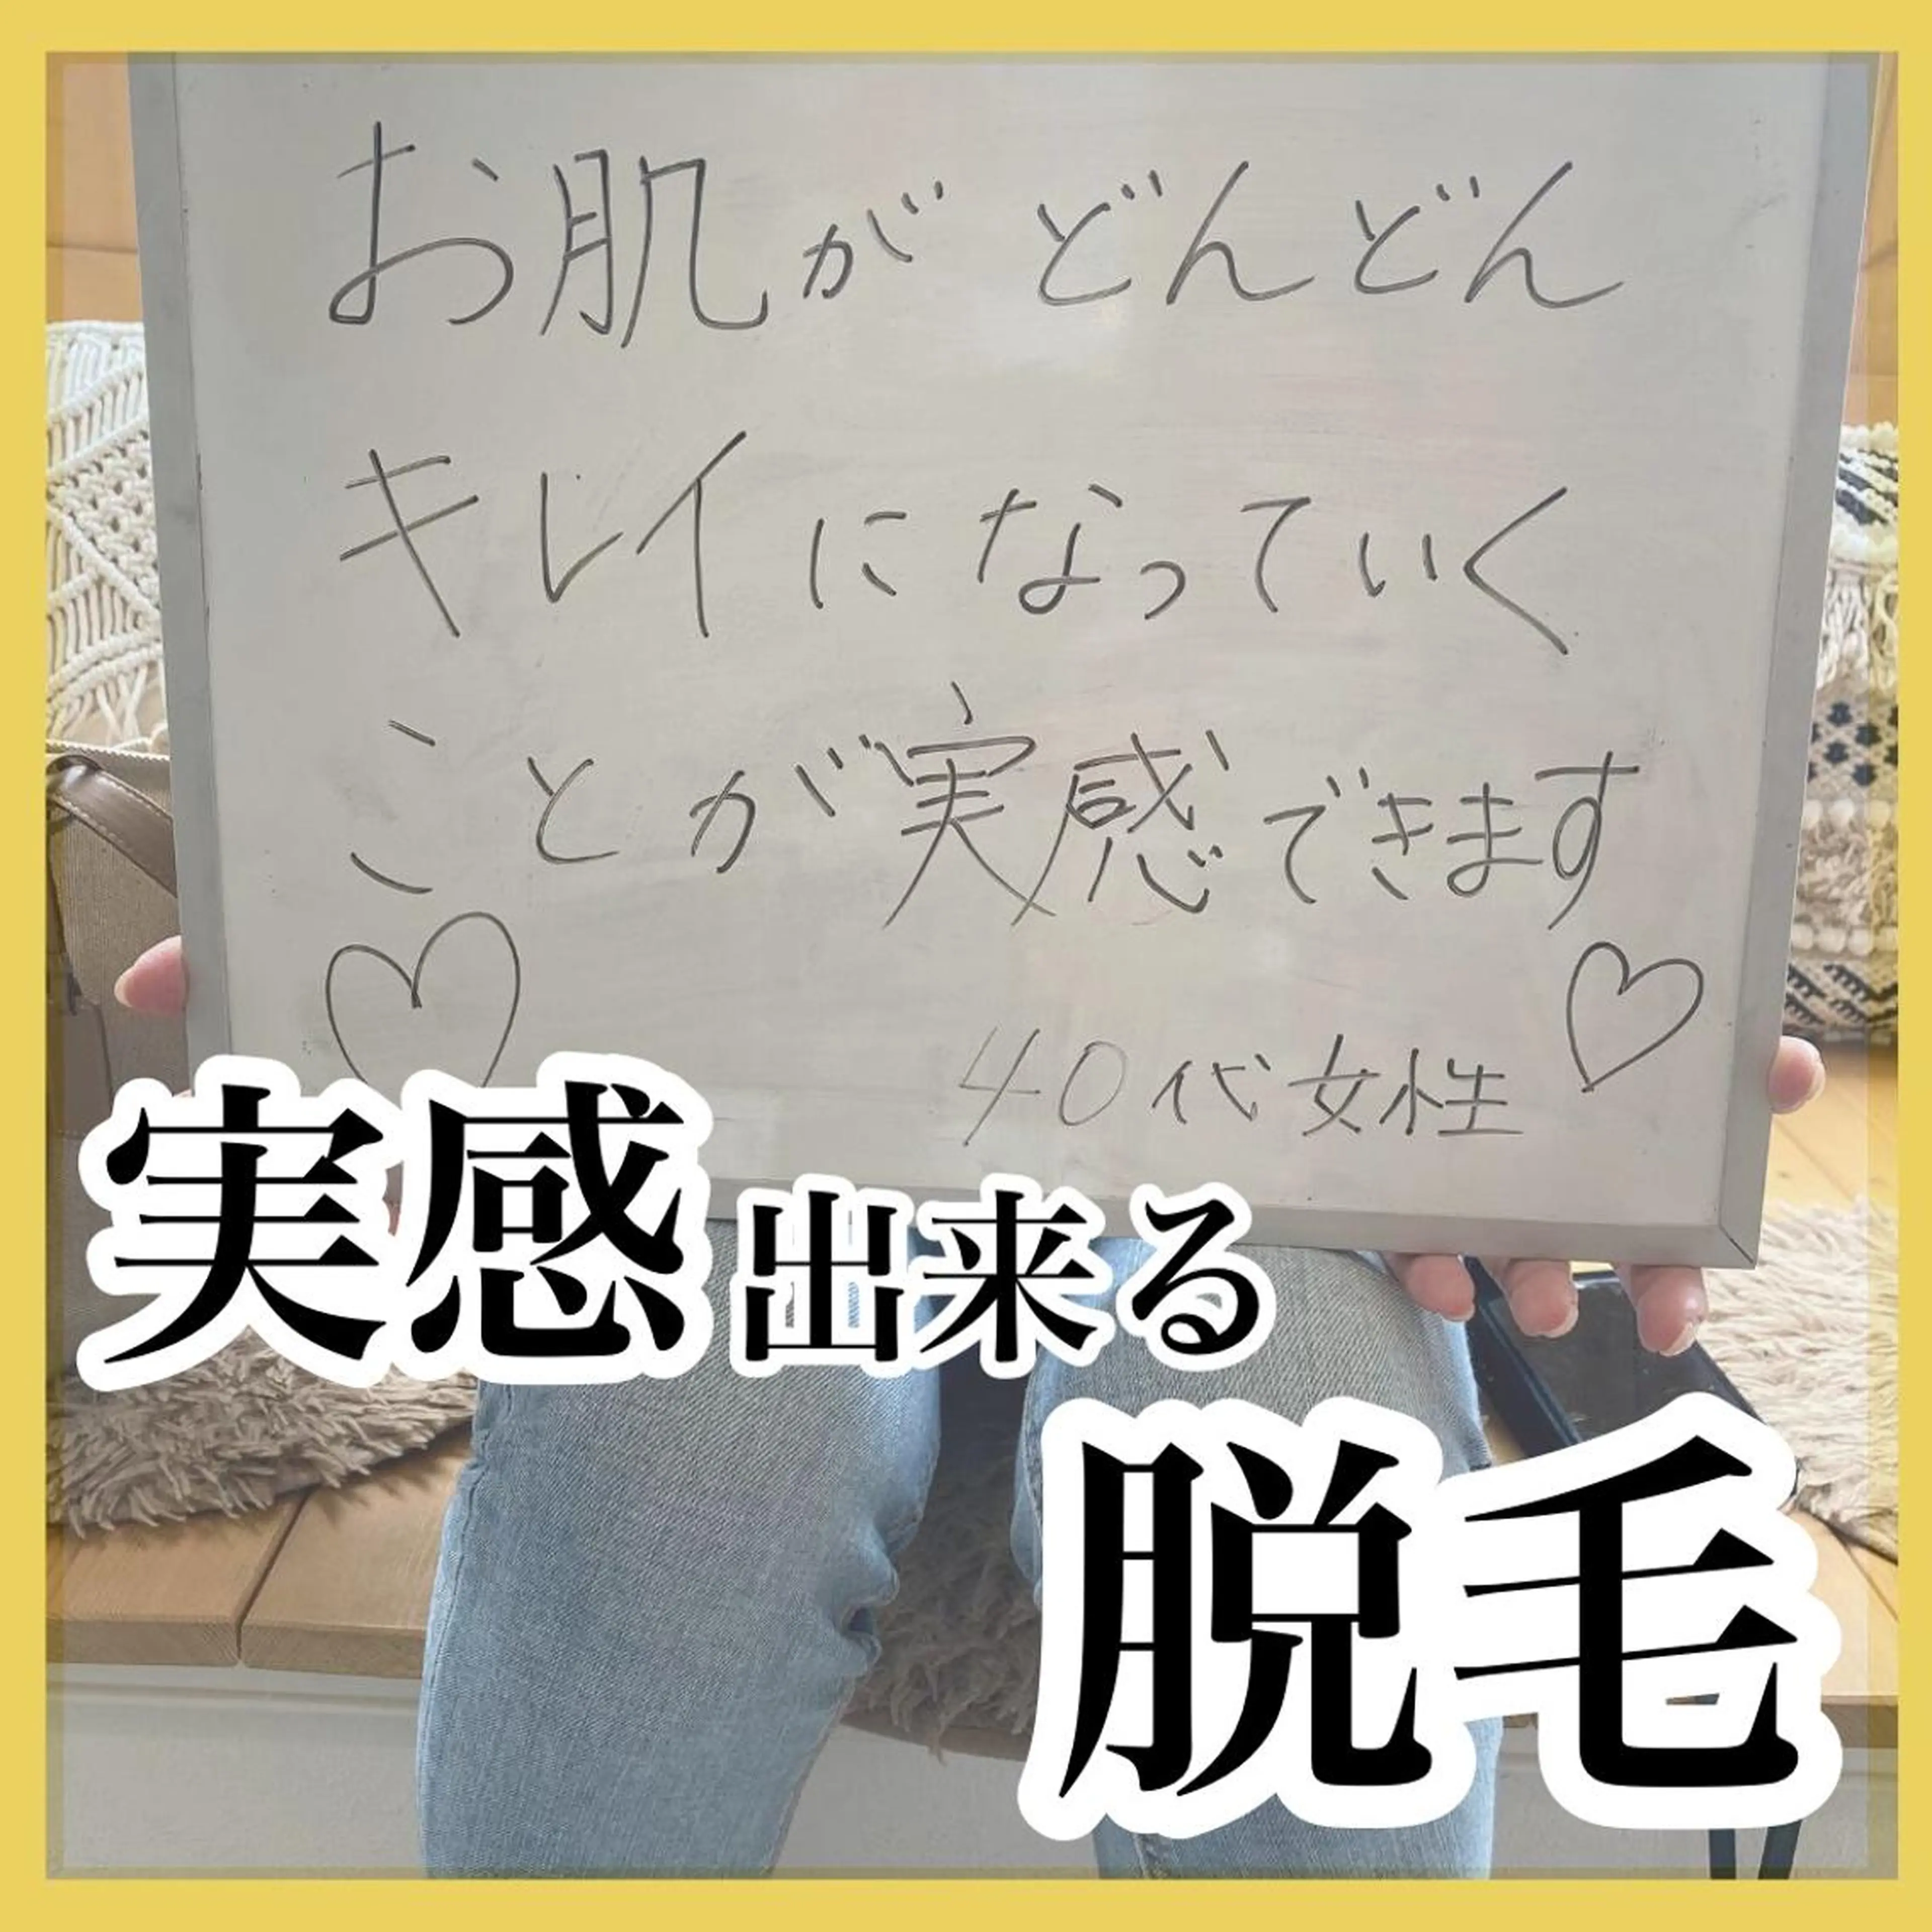 お肌がどんどん
キレイになっていく
ことが実感できます
♡ ♡
40代女性
実感出来る
脱毛